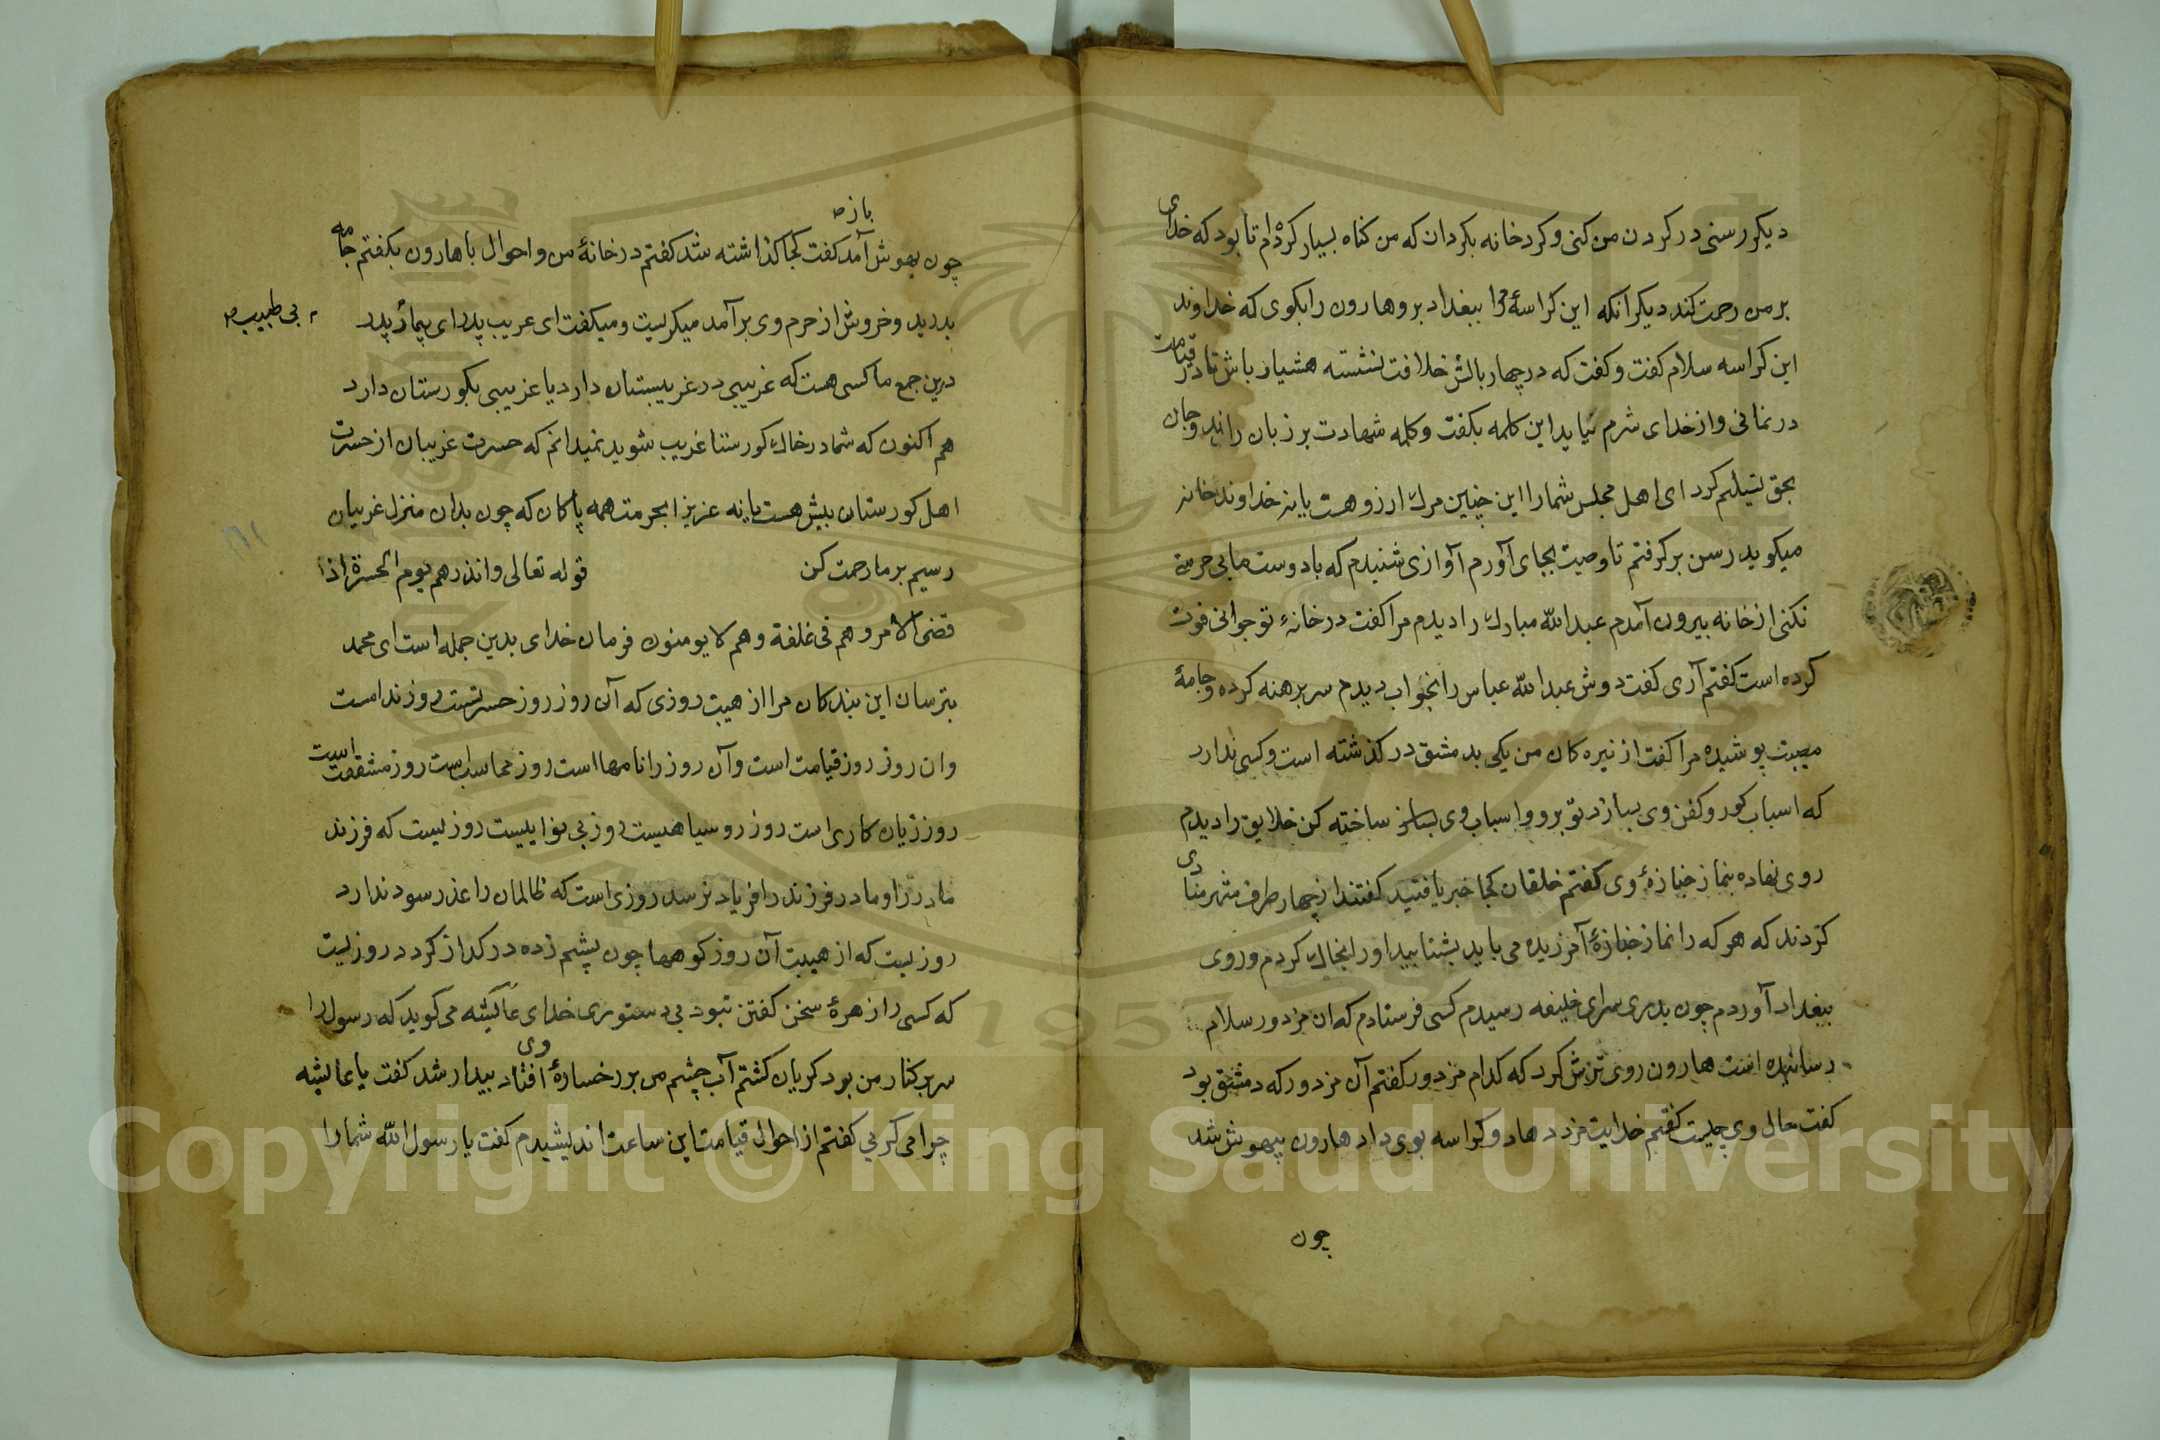 دیکر رسنی در کردن من کنی و کرد خانه بکردان که من کناه بسیار کرده‌ام تا بود که خدای
بر من رحمت کند دیکر آنکه این کراسهٔ مرا ببغداد بر و هارون را بکوی که خداوند
این کراسه سلام کفت و کفت که در چهار بالش خلافت نشسته هشیار باش تا در قیامت
در نمانی و از خدای شرم نیاید این کلمه بکفت و کلمه شهادت بر زبان راند و جان
بحق تسلیم کرد ای اهل مجلس شما را این چنین مرک ارزو هست یا نه خداوند خانه
میکوید رسن بر کرفتم تا وصیت بجای آورم آوازی شنیدم که با دوست ما بی حرمة
نکنی از خانه بیرون آمدم عبد الله مبارک را دیدم مرا کفت در خانهٔ تو جوانی فوت
کرده است کفتم آری کفت دوش عبد الله عباس را بخواب دیدم سر برهنه کرده و جامهٔ
مصیبت پوشیده مرا کفت از نبیره کان من یکی بدمشق در کذشته است و کسی ندارد
که اسباب کور و کفن وی بسازد تو برو و اسباب وی بساز ساخته کن خلایق را دیدم
روی نهاده بنماز جنازهٔ وی کفتم خلقان کجا خبر یافتید کفتند از چهار طرف شهر منادی
کردند که هر که را نماز جنازهٔ آمرزیده می باید بشتابید او را بخاک کردم و روی
ببغداد آوردم چون بدری سرای خلیفه رسیدم کسی فرستادم که ان مزدور سلام
رسانیده است هارون روی ترش کرد که کدام مزدور کفتم آن مزدور که دمشق بود
کفت حال وی چیست کفتم خدایت مزد دهاد و کراسه بوی داد هارون بیهوش شد
چون
باز
چون بهوش آمد کفت کجا کذاشته شد کفتم در خانهٔ من و احوال با هارون بکفتم جامه
بدرید و خروش از حرم وی برآمد میکریست و میکفت ای غریب پدر ای بیمار پدر
بی طبیب
درین جمع ما کسی هست که غریبی در غریبستان دارد یا غریبی بکورستان دارد
هم اکنون که شما در خاک کورستا غریب شوید نمیدانم که حسرت غریبان از حسرت
اهل کورستان بیش هست یا نه عزیزا بحرمت همه پاکان که چون بدان منزل غریبان
رسیم بر ما رحمت کن قوله تعالی وانذرهم یوم الحسرة اذا
قضی الامر وهم فی غفلة وهم لا یومنون فرمان خدای بدین جمله است ای محمد
بترسان این بندکان مرا از هیبت روزی که آن روز روز حسرتست روز نداست
وان روز روز قیامت است و آن روز را نامها است روز محاسبه است روز مشقت است
روز زیان کاری است روز رو سیاهیست روز بی نواییست روزیست که فرزند
مادر را و مادر فرزند را فریاد نرسد روزی است که ظالمان را عذر سود ندارد
روزیست که از هیبت آن روز کوهها چون پشم زده در کداز کردد روزیست
که کسی را زهرهٔ سخن کفتن نبود بی دستوری خدای عایشه می کوید که رسول را
سر بر کنار من بود کریان کشتم آب چشم من بر رخسارهٔ وی افتاد بیدار شد کفت یا عایشه
چرا می کریی کفتم از احوال قیامت این ساعت اندیشیدم کفت یا رسول الله شما را
Copyright © King Saud University
1957